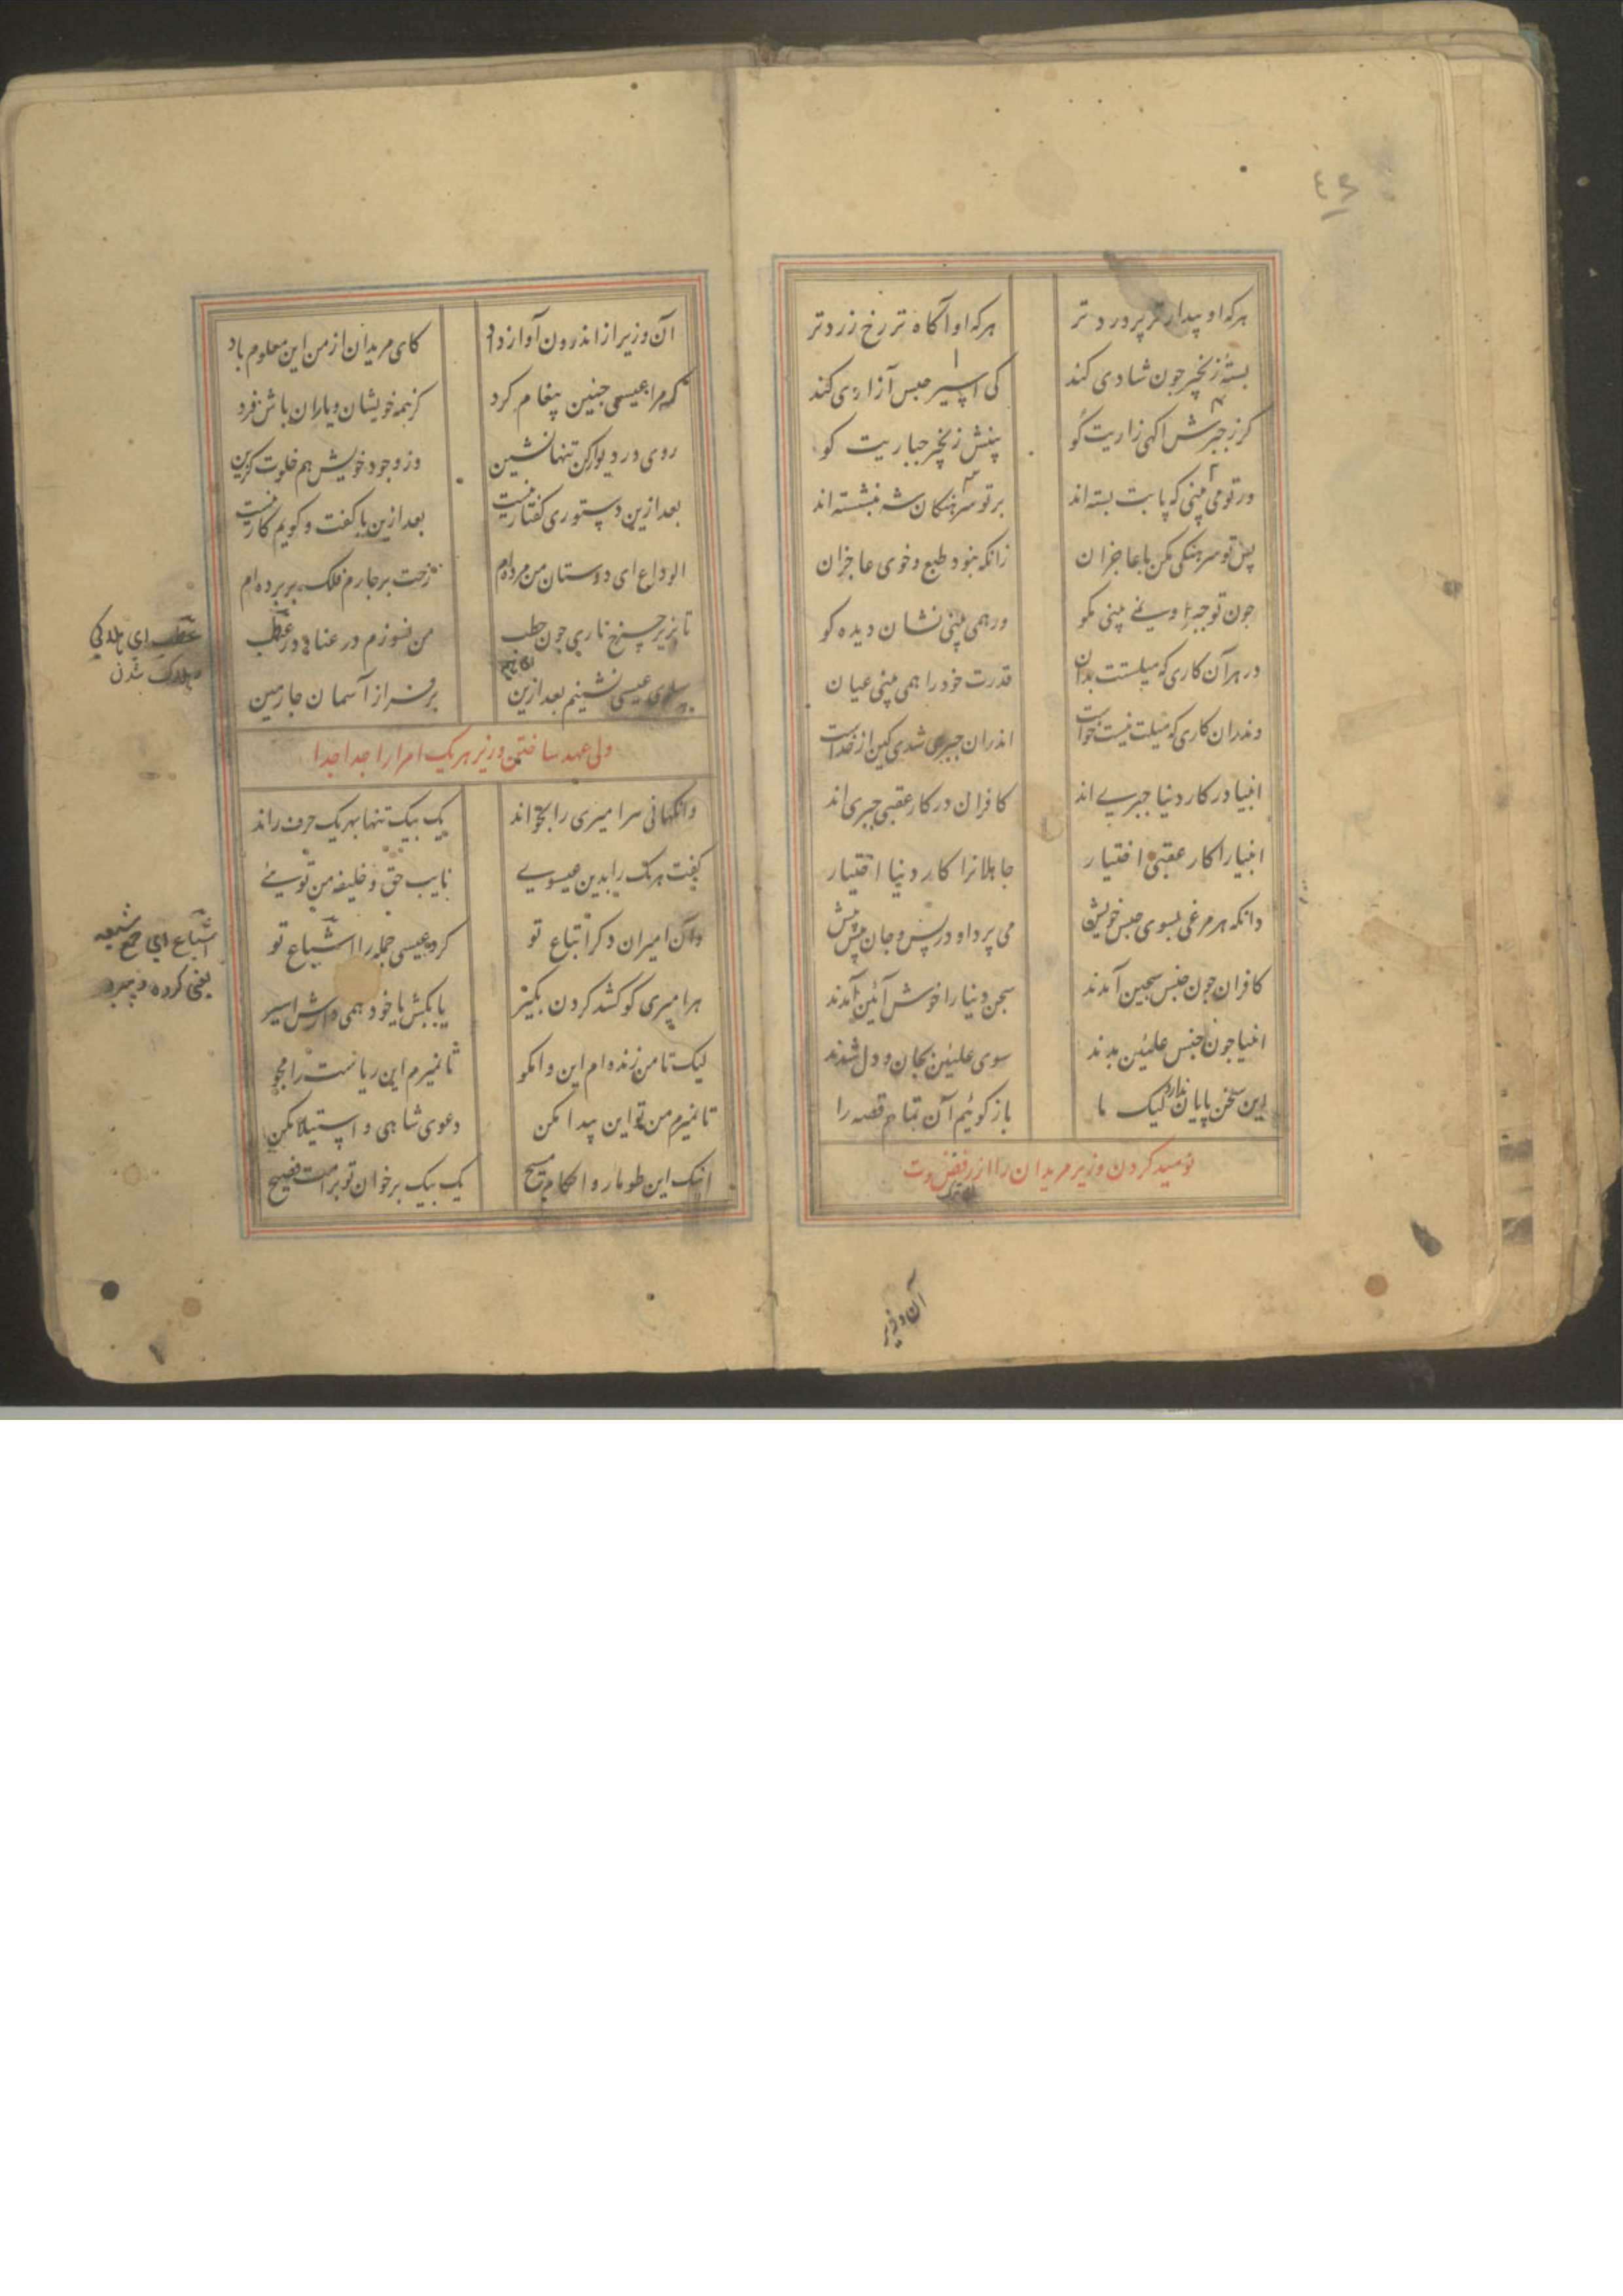 هرکه او بیدارتر پر درد تر
هرکه او آگاه تر رخ زرد تر
بستهٔ زنجیر چون شادی کند
کی اسیر حبس آزادی کند
کر ز جبرش اکهی زاریت کو
پنش زنجیر جباریت کو
ور تو می بینی که پایت بسته اند
بر تو سرهنکان شه بنشسته اند
پس تو سرهنکی مکن با عاجزان
زانکه نبود طبع و خوی عاجزان
چون تو جبر او نمی بینی مکو
ور همی بینی نشان دیده کو
در هر آن کاری که میلستت بدان
قدرت خود را همی بینی عیان
وندران کاری که میلت نیست و خواست
اندران جبری شدی کین از خداست
انبیا در کار دنیا جبری اند
کافران در کار عقبی جبری اند
انبیا را کار عقبی اختیار
جاهلانرا کار دنیا اختیار
دانکه هر مرغی بسوی جنس خویش
می پرد او در پس و جان پیش پیش
کافران چون جنس سجین آمدند
سجن دنیا را خوش آئین آمدند
انبیا چون جنس علیین بدند
سوی علیین بجان و دل شدند
این سخن پایان ندارد لیک ما
باز کوئیم آن تمام قصه را
نومید کردن وزیر مریدان را از رفض خلوت
آن وزیر
آن وزیر از اندرون آواز داد
کای مریدان از من این معلوم باد
که مرا عیسی چنین پیغام کرد
کز همه خویشان و یاران باش فرد
روی در دیوار کن تنها نشین
وز وجود خویش هم خلوت کزین
بعد ازین دستوری کفتار نیست
بعد ازین با کفت و کویم کار نیست
الوداع ای دوستان من مرده ام
رخت بر چارم فلک بر برده ام
تا بزیر چرخ ناری چون حطب
من نسوزم در عنا و در عطب
پهلوی عیسی نشینم بعد ازین
بر فراز آسمان چارمین
عطب ای هلاکی
هلاک شدن
ولی عهد ساختن وزیر هر یک امرا را جدا جدا
وانکهانی سر امیری را بخواند
یک بیک تنها بهر یک حرف راند
کفت هر یک را بدین عیسوی
نایب حق و خلیفه من توئی
وان امیران دکر اتباع تو
کرد عیسی جمله را اشیاع تو
اشیاع ای جمع شیعه
یعنی کروه و پیرو
هر امیری کو کشد کردن بکیر
یا بکش یا خود همی دارش اسیر
لیک تا من زنده ام این وا مکو
تا نمیرم این ریاست را مجو
تا نمیرم من تو این پیدا مکن
دعوی شاهی و استیلا مکن
اینک این طومار و احکام مسیح
یک بیک برخوان تو بر امت فصیح